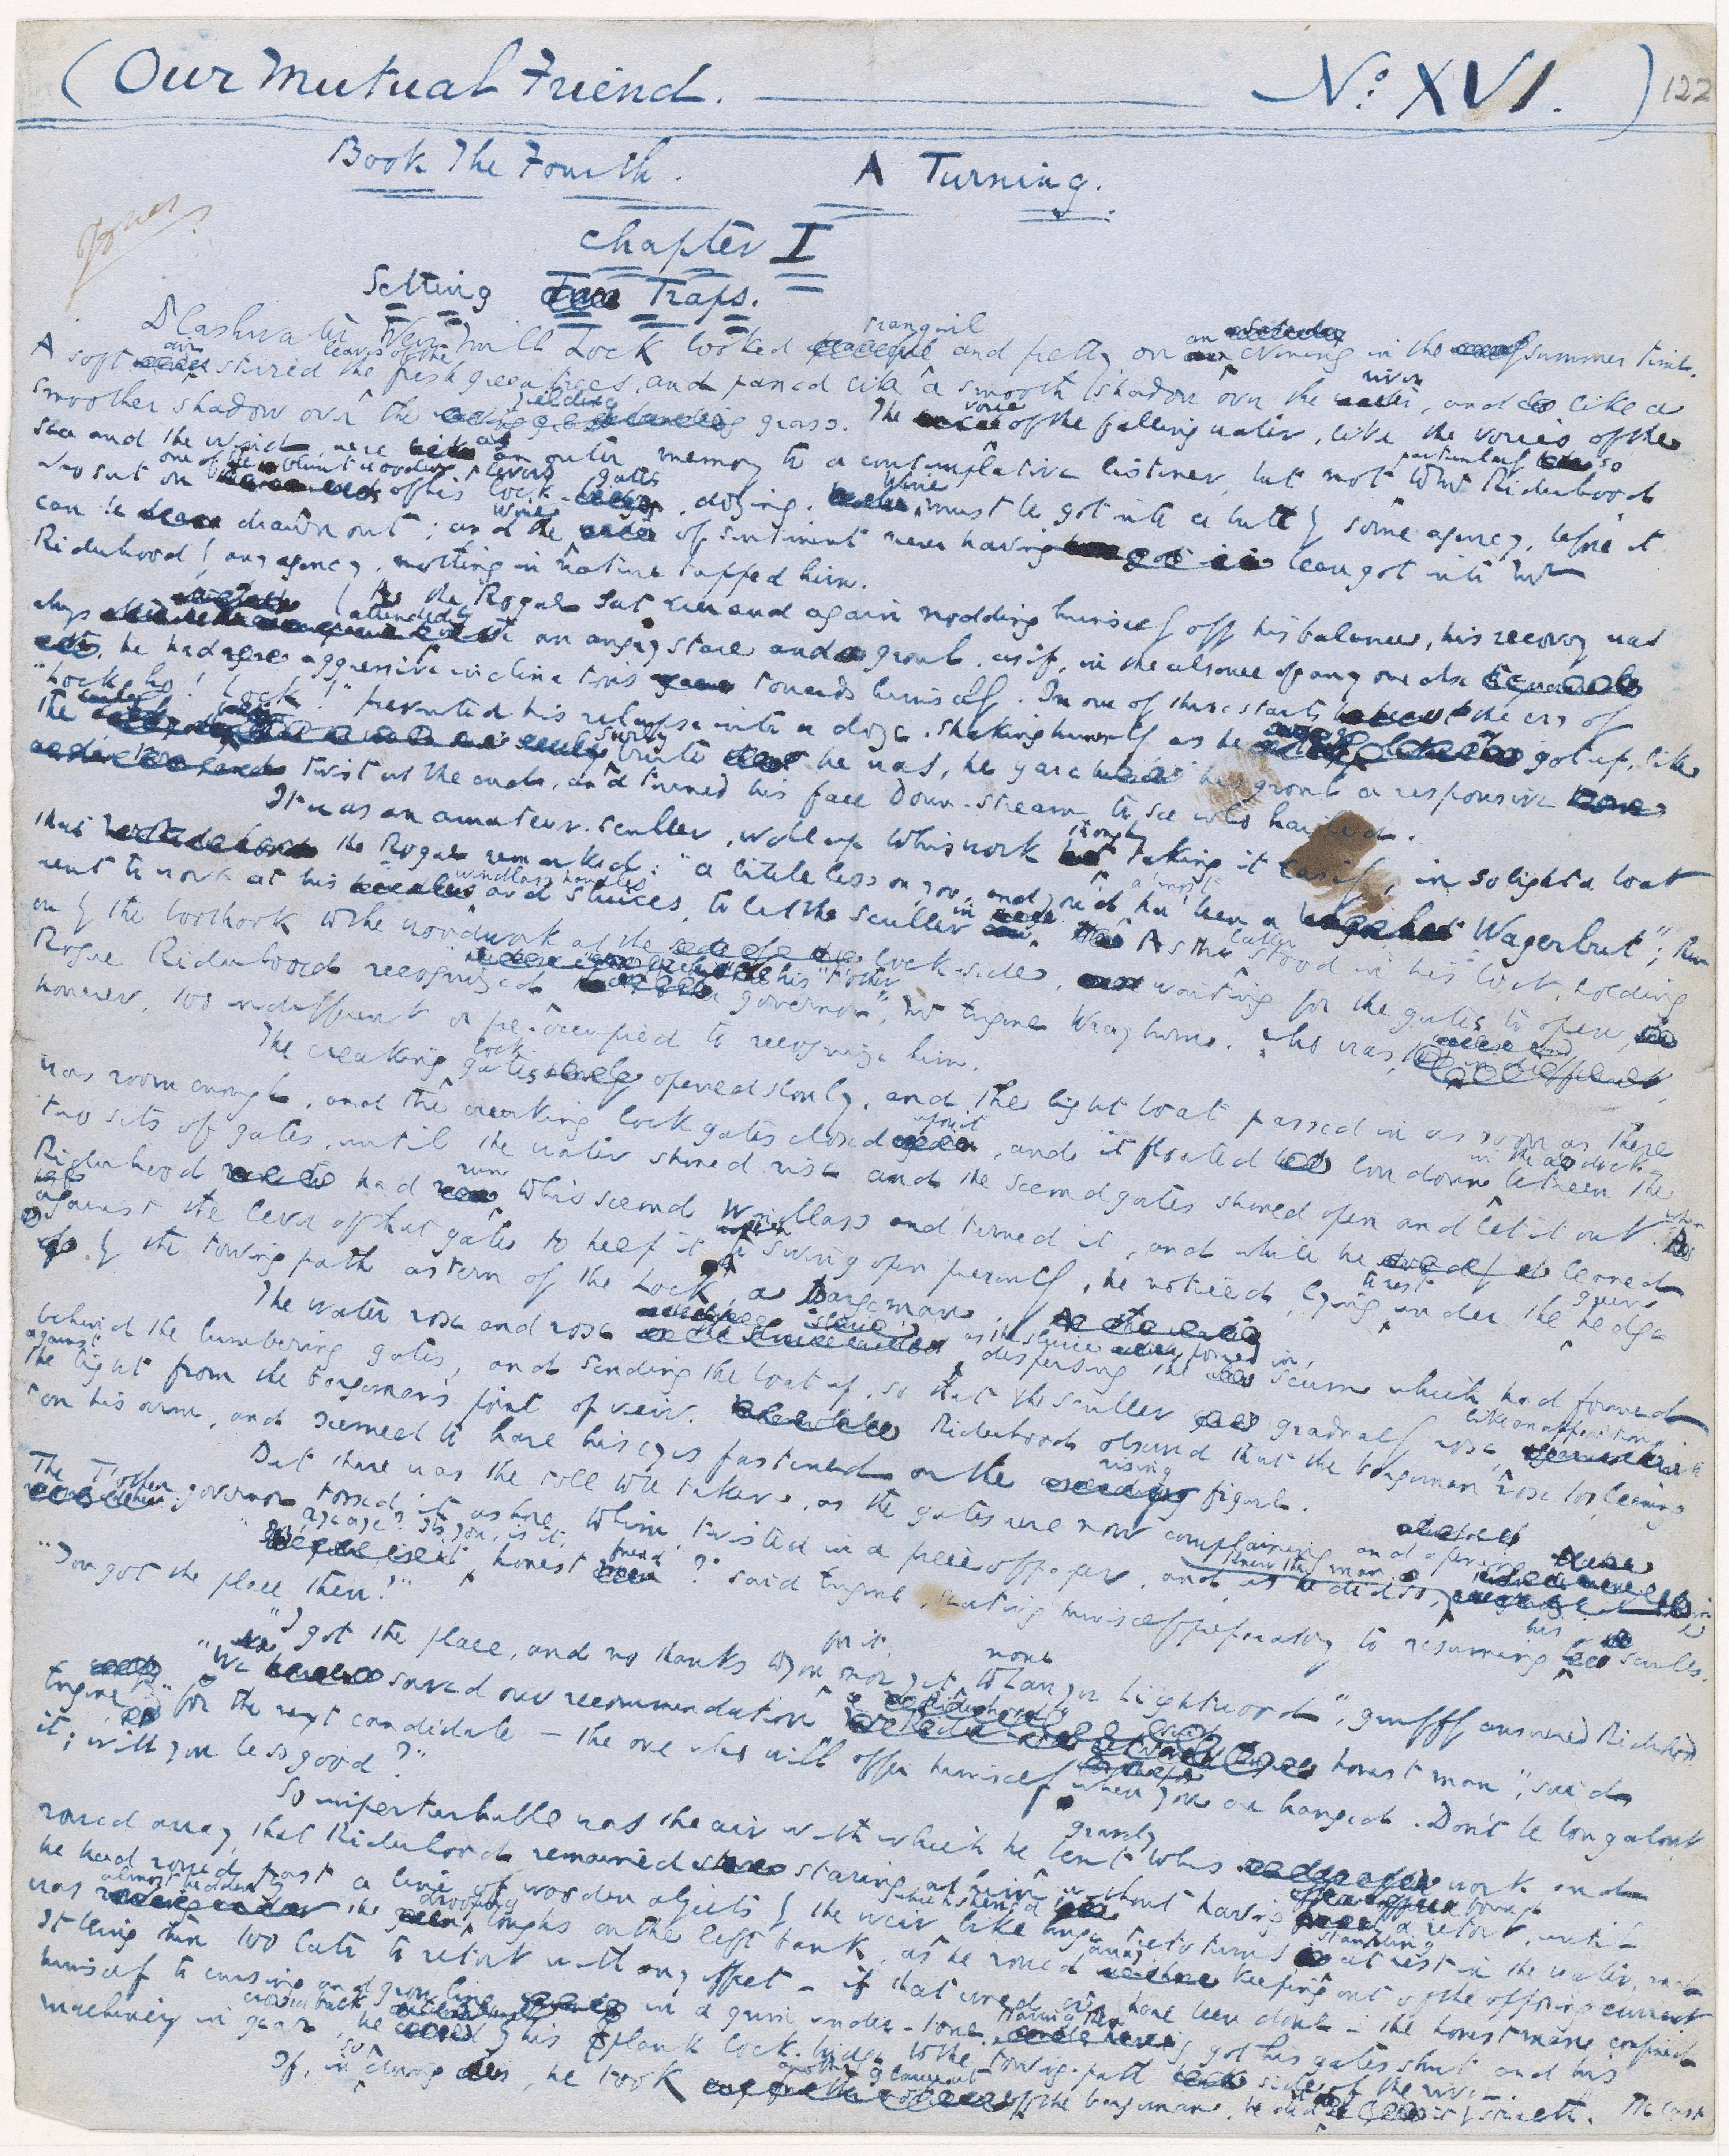 (Our Mutual Friend. No: XVI.) 122
Book The Fourth. A Turning.
Jones
Chapter I
Setting Traps.
Plashwater Weir Mill Lock looked tranquil and pretty on an evening in the summer time.
A soft air stirred the leaves of the fresh green trees, and passed like a smooth shadow over the river, and like a
smoother shadow over the yielding grass. The voice of the falling water, like the voices of the
sea and the wind, were as an outer memory to a contemplative listener, but not particularly so to Mr Riderhood
who sat on one of the blunt wooden levers of his lock-gates, dozing. Wine must be got into a butt by some agency, before it
can be drawn out; and the wine of sentiment never having been got into Mr
Riderhood by any agency, nothing in nature tapped him.
As the Rogue sat ever and again nodding himself off his balance, his recovery was
always attended by an angry stare and growl, as if, in the absence of any one else
he had aggressive inclinations towards himself. In one of these starts the cry of
"Lock ho! Lock!" prevented his relapse into a doze. Shaking himself as he got up, like
the surly brute he was, he gave his growl a responsive
twist at the end, and turned his face down-stream to see who hailed.
It was an amateur-sculler, well up to his work though taking it easily, in so light a boat
that the Rogue remarked: "a little less on you, and you'd a'most ha' been a Wagerbut"; then
went to work at his windlass handles and sluices, to let the sculler in. As the latter stood in his boat, holding
on by the boathook to the woodwork at the lock side, waiting for the gates to open,
Rogue Riderhood recognized his "T'other governor", Mr Eugene Wrayburn. who was,
however, too indifferent or pre-occupied to recognize him.
The creaking lock gates opened slowly, and the light boat passed in as soon as there
was room enough, and the creaking lock gates closed upon it, and it floated low down in the dock between the
two sets of gates, until the water should rise and the second gates should open and let it out. When
Riderhood had run to his second windlass and turned it, and while he leaned
against the lever of that gate to help it to swing open presently, he noticed, lying to rest under the green hedge
by the towing path astern of the Lock, a Bargeman.
The water rose and rose as the sluice poured in, dispersing the scum which had formed
behind the lumbering gates, and sending the boat up, so that the sculler gradually rose like an apparition
against the light from the bargeman's point of view. Riderhood observed that the bargeman rose too, leaning
on his arm, and seemed to have his eyes fastened on the rising figure.
But there was the toll to be taken, as the gates were now complaining and opening
The T'other governor tossed it ashore, twisted in a piece of paper, and as he did so, knew his man
"Ay, ay? It's you, is it, honest friend?" said Eugene, seating himself preparatory to resuming his sculls.
"You got the place then?"
"I got the place, and no thanks to you for it, nor yet none to Lawyer Lightwood", gruffly answered Riderhood
"We saved our recommendation, honest man", said
Eugene "for the next candidate – the one who will offer himself when you are hanged. Don't be long about
it; will you be so good?"
So imperturbable was the air with which he gravely bent to his work and
rowed away, that Riderhood remained staring at him without having found a retort, until
he had rowed past a line of wooden objects by the weir which showed like huge teetotums standing at rest in the water, and
was almost hidden by the drooping boughs on the left bank, as he rowed away keeping out of the opposing current
It being then too late to retort with any effect – if that could ever have been done – the honest man confined
himself to cursing and growling in a grim under-tone. Having then got his gates shut and his
machinery in gear, he crossed back by his plank lock-bridge to the towing-path side of the river.
If, in so doing, he took another glance at the bargeman, he did it by stealth. He cast